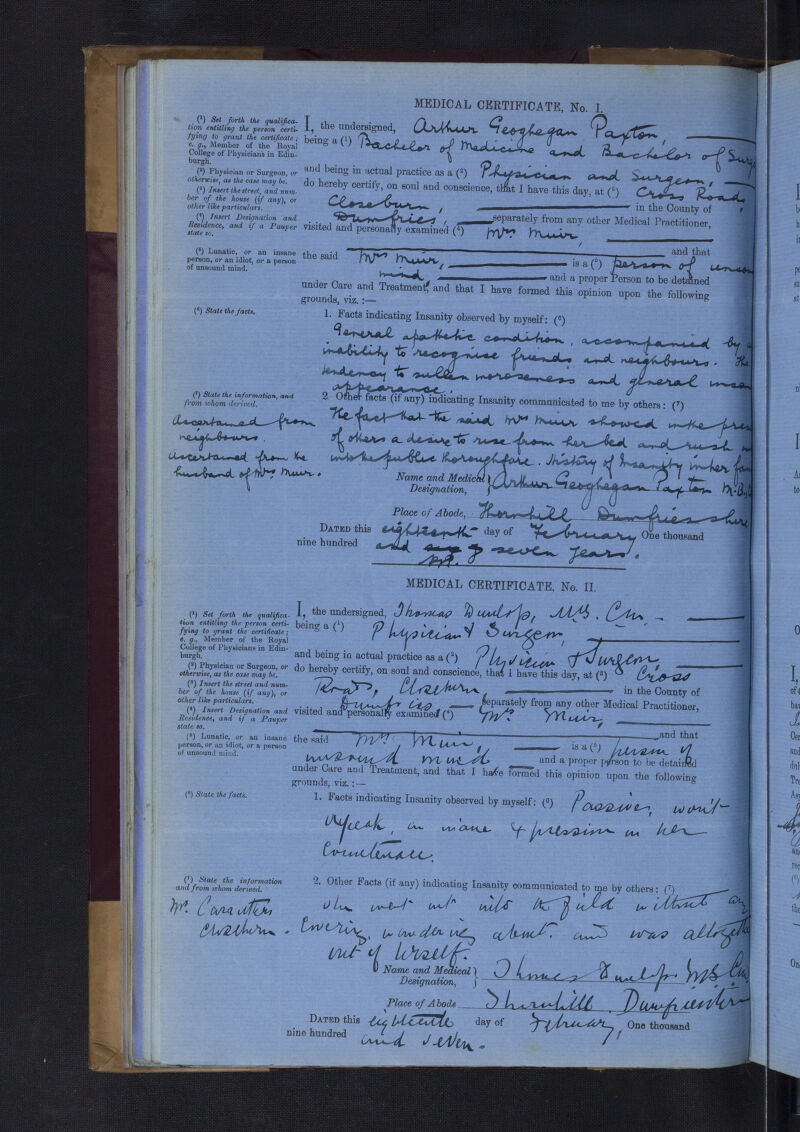 MEDICAL CERTIFICATE, No. I.
(¹) Set forth the qualifica-
tion entitling the person certi-
fying to grant the certificate;
e. g., Member of the Royal
College of Physicians in Edin-
burgh.
I, the undersigned, Arthur Geoghegan Paxton,
being a (¹) Bachelor of Medicine and Bachelor of
(²) Physician or Surgeon, or
otherwise, as the case may be.
and being in actual practice as a (²) Physician and Surgeon,
(³) Insert the street, and num-
ber of the house (if any), or
other like particulars.
do hereby certify, on soul and conscience, that I have this day, at (³) Cross Roads,
Closeburn, in the County of
(⁴) Insert Designation and
Residence, and if a Pauper
state so.
Dumfries, separately from any other Medical Practitioner,
visited and personally examined (⁴) Mrs Muir,
(⁵) Lunatic, or an insane
person, or an idiot, or a person
of unsound mind.
and that
the said Mrs Muir, is a (⁵) person of
mind, and a proper Person to be detained
under Care and Treatment, and that I have formed this opinion upon the following
grounds, viz. :—
(⁶) State the facts.
1. Facts indicating Insanity observed by myself: (⁶)
General apathetic condition, accompanied by
inability to recognise friends and neighbours. The
tendency to sullen moroseness and general
appearance.
(⁷) State the information, and
from whom derived.
2 Other facts (if any) indicating Insanity communicated to me by others: (⁷)
Ascertained from
neighbours.
The fact that the said Mrs Muir showed in the
of others a desire to rise from her bed and rush
Ascertained from the
husband of Mrs Muir.
into the public thoroughfare. History of Insanity in her
Name and Medical
Designation, Arthur Geoghegan Paxton M.B.,
Place of Abode, Thornhill Dumfriesshire
DATED this eighteenth day of February One thousand
nine hundred and seven years.
MEDICAL CERTIFICATE, No. II.
(¹) Set forth the qualifica-
tion entitling the person certi-
fying to grant the certificate;
e. g., Member of the Royal
College of Physicians in Edin-
burgh.
I, the undersigned, Thomas Dunlop, M.B. Cm,
being a (¹) Physician & Surgeon,
(²) Physician or Surgeon, or
otherwise, as the case may be.
and being in actual practice as a (²) Physician & Surgeon,
(³) Insert the street and num-
ber of the house (if any), or
other like particulars.
do hereby certify, on soul and conscience, that I have this day, at (³) Cross
Roads, Closeburn, in the County of
(⁴) Insert Designation and
Residence, and if a Pauper
state so.
Dumfries separately from any other Medical Practitioner,
visited and personally examined (⁴) Mrs Muir,
(⁵) Lunatic, or an insane
person, or an idiot, or a person
of unsound mind.
and that
the said Mrs Muir, is a (⁵) person of
unsound mind and a proper person to be detained
under Care and Treatment, and that I have formed this opinion upon the following
grounds, viz. :—
(⁶) State the facts.
1. Facts indicating Insanity observed by myself: (⁶) Passive, won't
speak, an inane expression on her
Countenance.
(⁷) State the information
and from whom derived.
2. Other Facts (if any) indicating Insanity communicated to me by others: (⁷)
Mr. Caruthers
Closeburn.
She went out into the field without any
Covering, wandering about. and was
out of herself.
Name and Medical
Designation, Thomas Dunlop MB Cm
Place of Abode Thornhill. Dumfriesshire
DATED this eighteenth day of February, One thousand
nine hundred and seven.